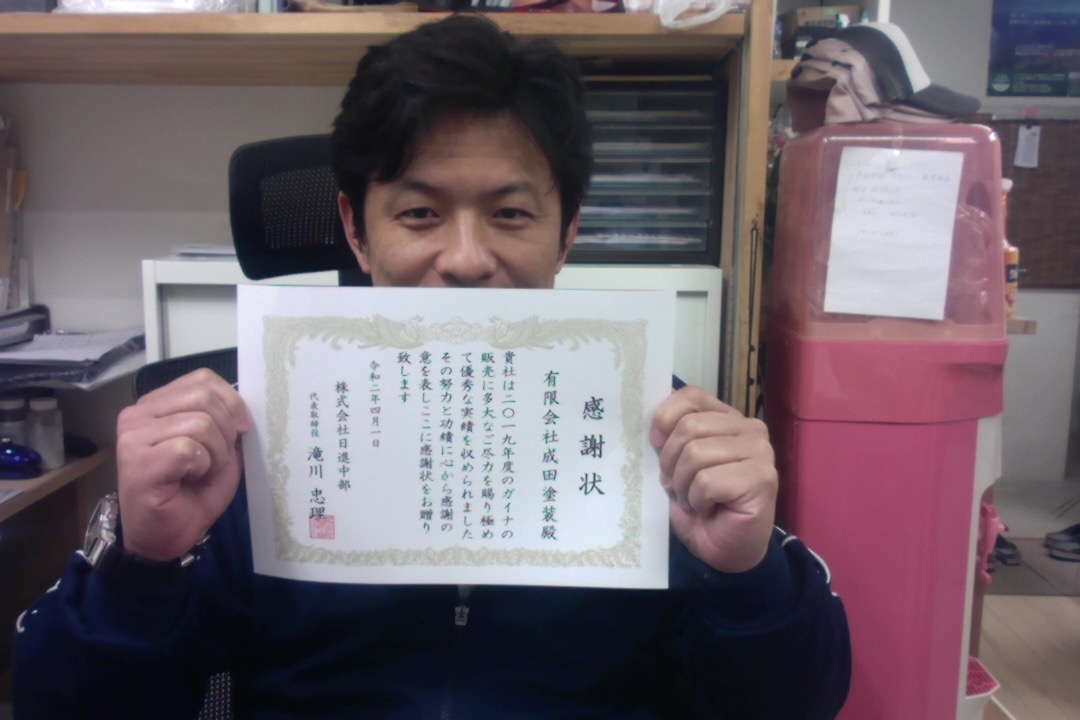 感謝状
有限会社成田塗装殿
貴社は二〇一九年度のガイナの
販売に多大なご尽力を賜り極め
て優秀な実績を収められました
その努力と功績に心から感謝の
意を表しここに感謝状をお贈り
致します
令和二年四月一日
株式会社日進中部
代表取締役 滝川 忠理